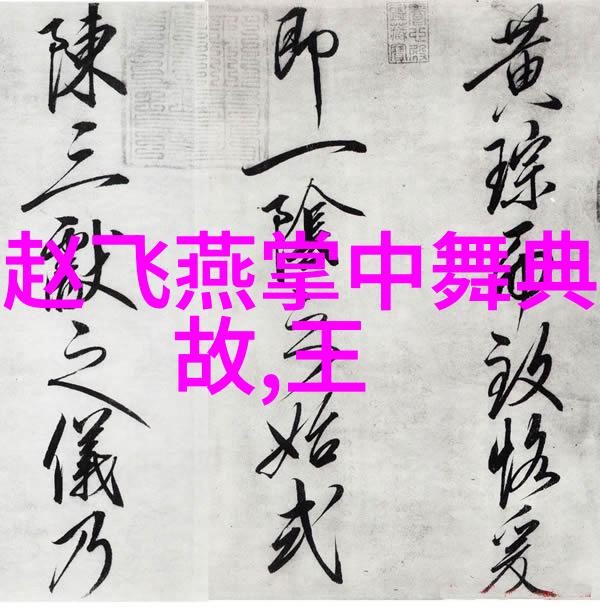 赵飞燕掌中舞典
故,王
黄琮致恪爰
即一陰始式
陳三獻之儀乃